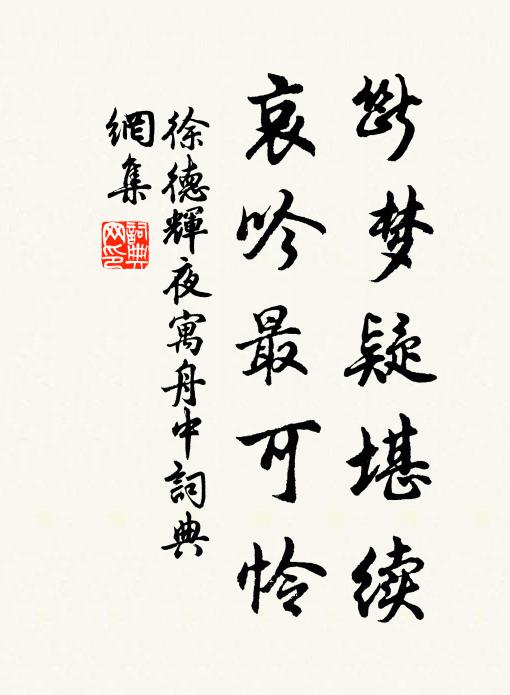 斷梦疑堪续
哀吟最可怜
徐德輝夜寓舟中詞典
網集
詞典
网印